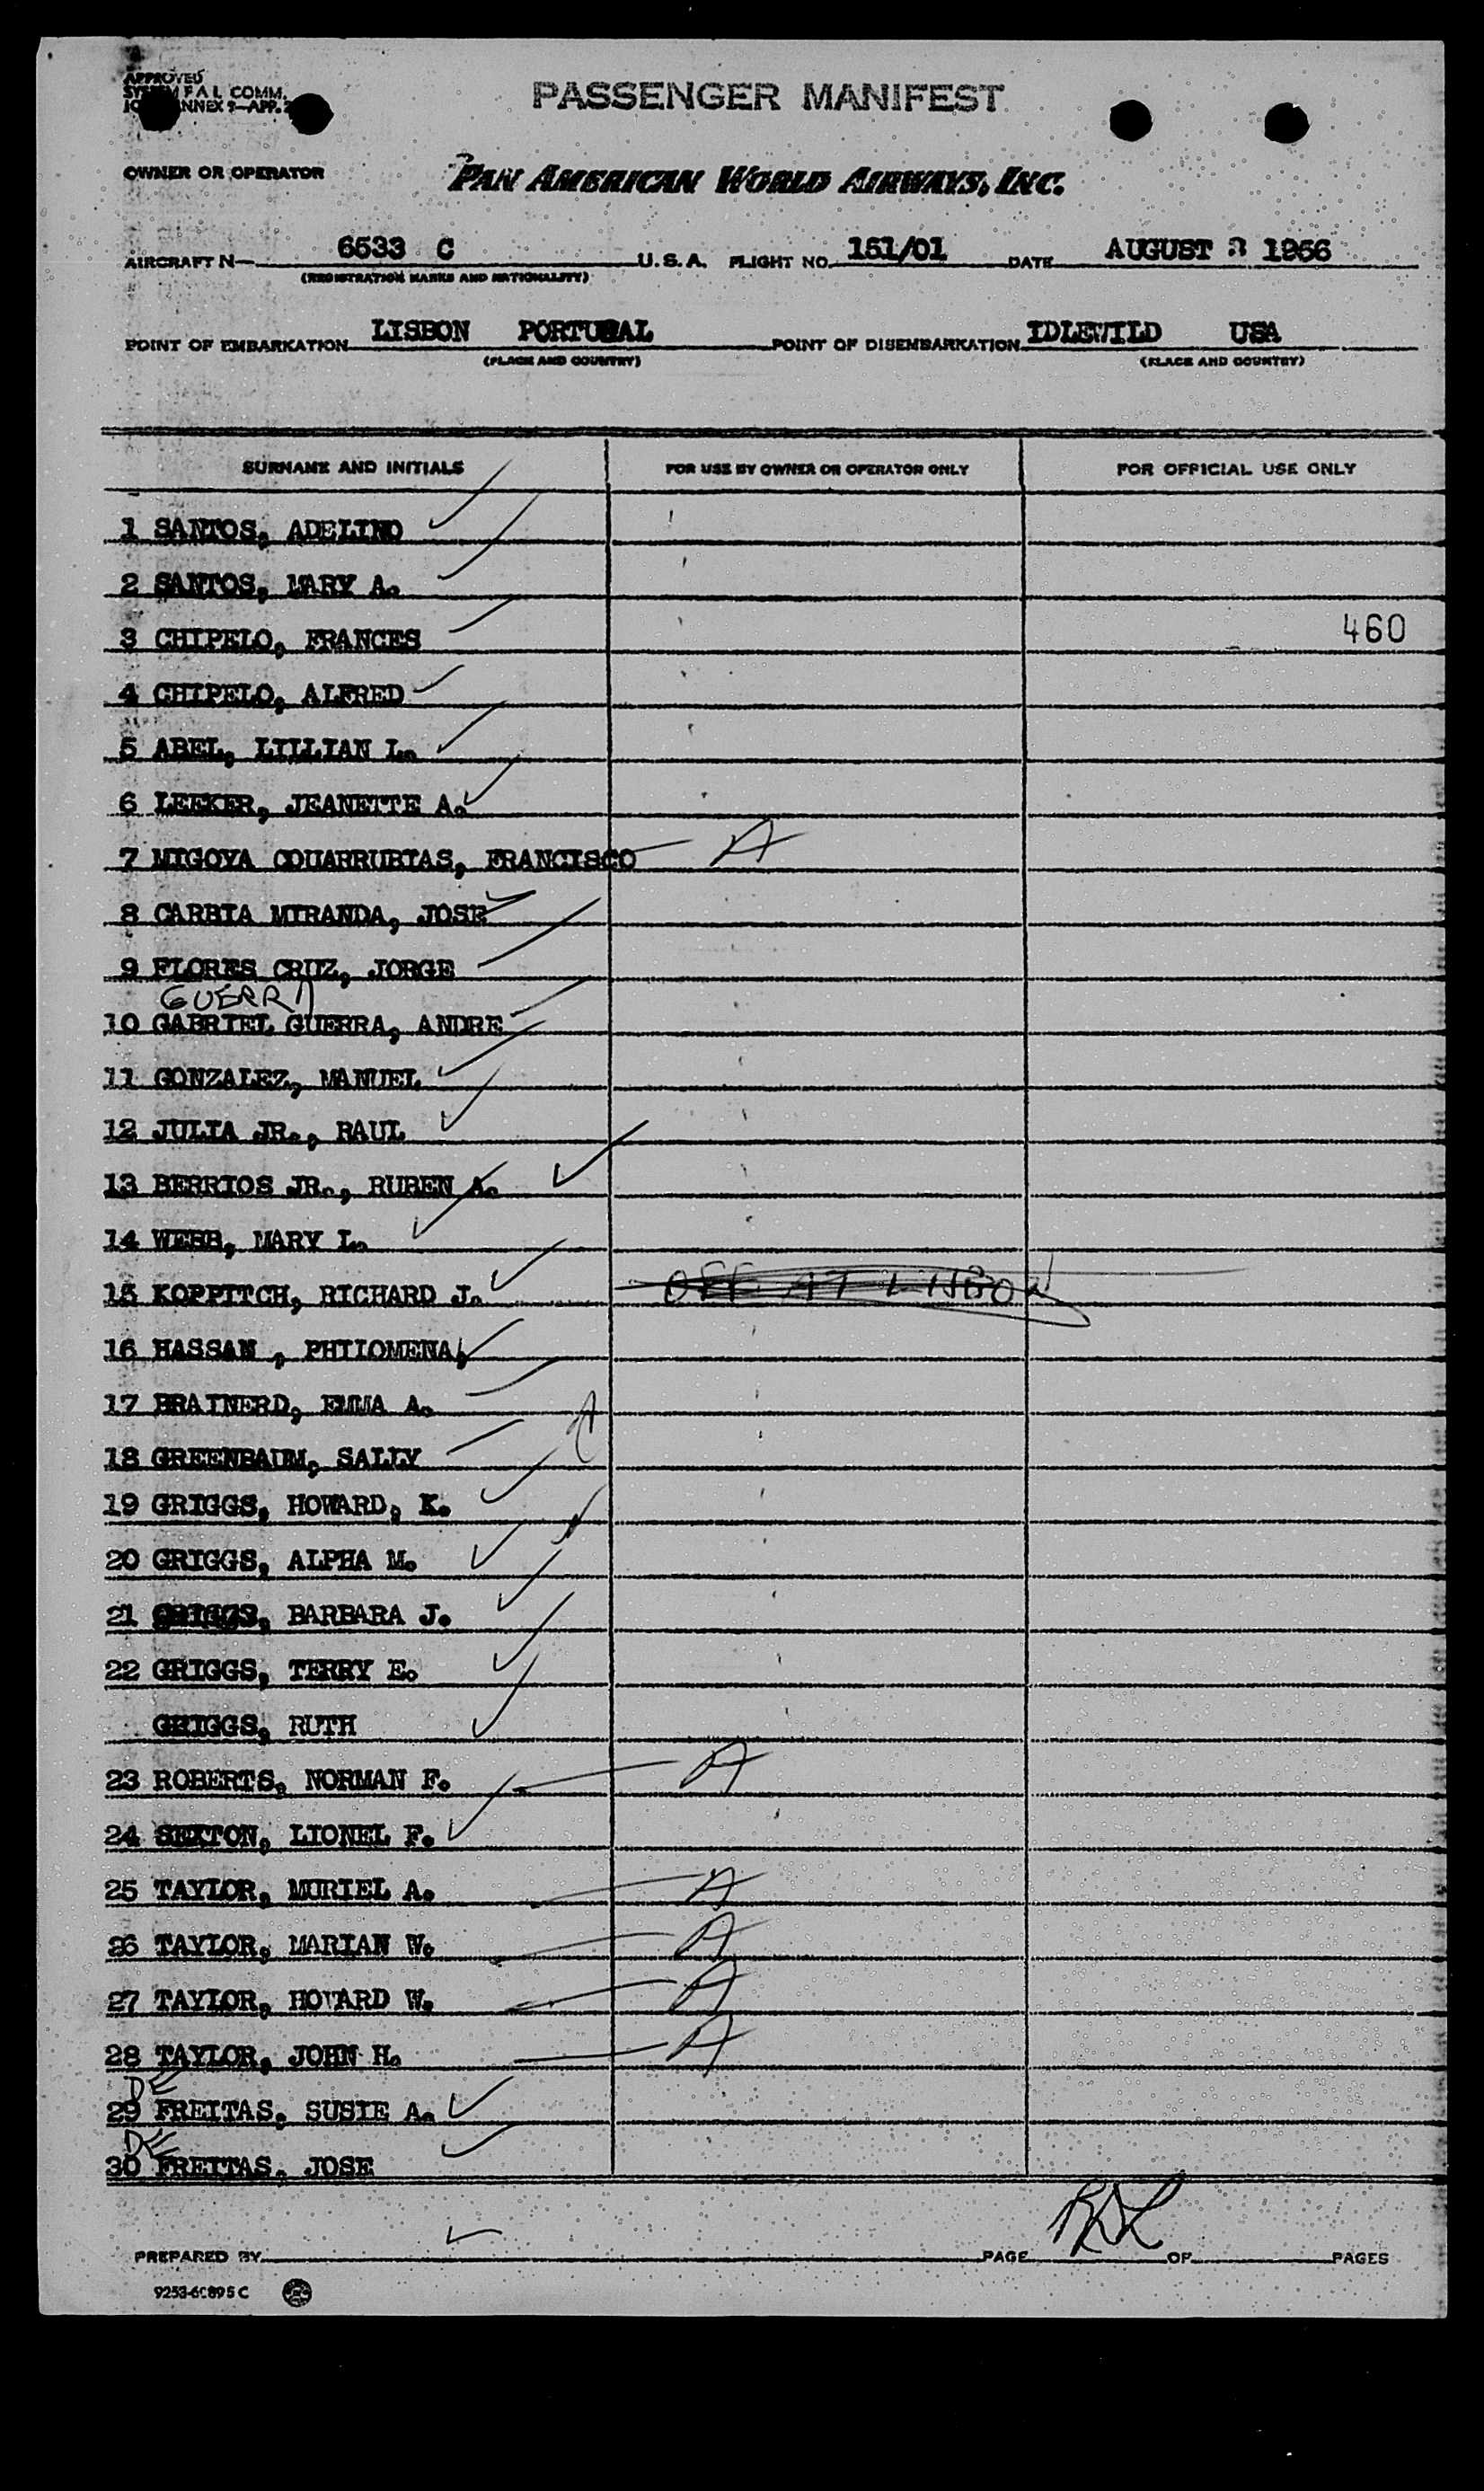 APPROVED
F A L COMM.
ANNEX 9—APP.
PASSENGER MANIFEST
OWNER OR OPERATOR
PAN AMERICAN WORLD AIRWAYS, INC.
AIRCRAFT N— 6533 C U.S.A. FLIGHT NO. 151/01 DATE AUGUST 3 1956
(REGISTRATION MARKS AND NATIONALITY)
POINT OF EMBARKATION LISBON PORTUGAL POINT OF DISEMBARKATION IDLEWILD USA
(PLACE AND COUNTRY) (PLACE AND COUNTRY)
SURNAME AND INITIALS FOR USE BY OWNER OR OPERATOR ONLY FOR OFFICIAL USE ONLY
1 SANTOS, ADELINO
2 SANTOS, MARY A.
3 CHIPELO, FRANCES 460
4 CHIPELO, ALFRED
5 ABEL, LILLIAN L.
6 LEEKER, JEANETTE A.
7 MIGOYA COUARRUBIAS, FRANCISCO A
8 CARBIA MIRANDA, JOSE
9 FLORES CRUZ, JORGE
GUERRA
10 GABRIEL GUERRA, ANDRE
11 GONZALEZ, MANUEL
12 JULIA JR., RAUL
13 BERRIOS JR., RUBEN A.
14 WEBB, MARY L.
15 KOPPITCH, RICHARD J. OFF AT LISBON
16 HASSAN , PHILOMENA,
17 BRAINERD, EMMA A.
18 GREENBAUM, SALLY
19 GRIGGS, HOWARD, K.
20 GRIGGS, ALPHA M.
21 GRIGGS, BARBARA J.
22 GRIGGS, TERRY E.
GRIGGS, RUTH
23 ROBERTS, NORMAN F. A
24 SEXTON, LIONEL F.
25 TAYLOR, MURIEL A. A
26 TAYLOR, MARIAN W. A
27 TAYLOR, HOWARD W. A
28 TAYLOR, JOHN H. A
DE
29 FREITAS, SUSIE A.
DE
30 FREITAS, JOSE
PREPARED BY PAGE OF PAGES